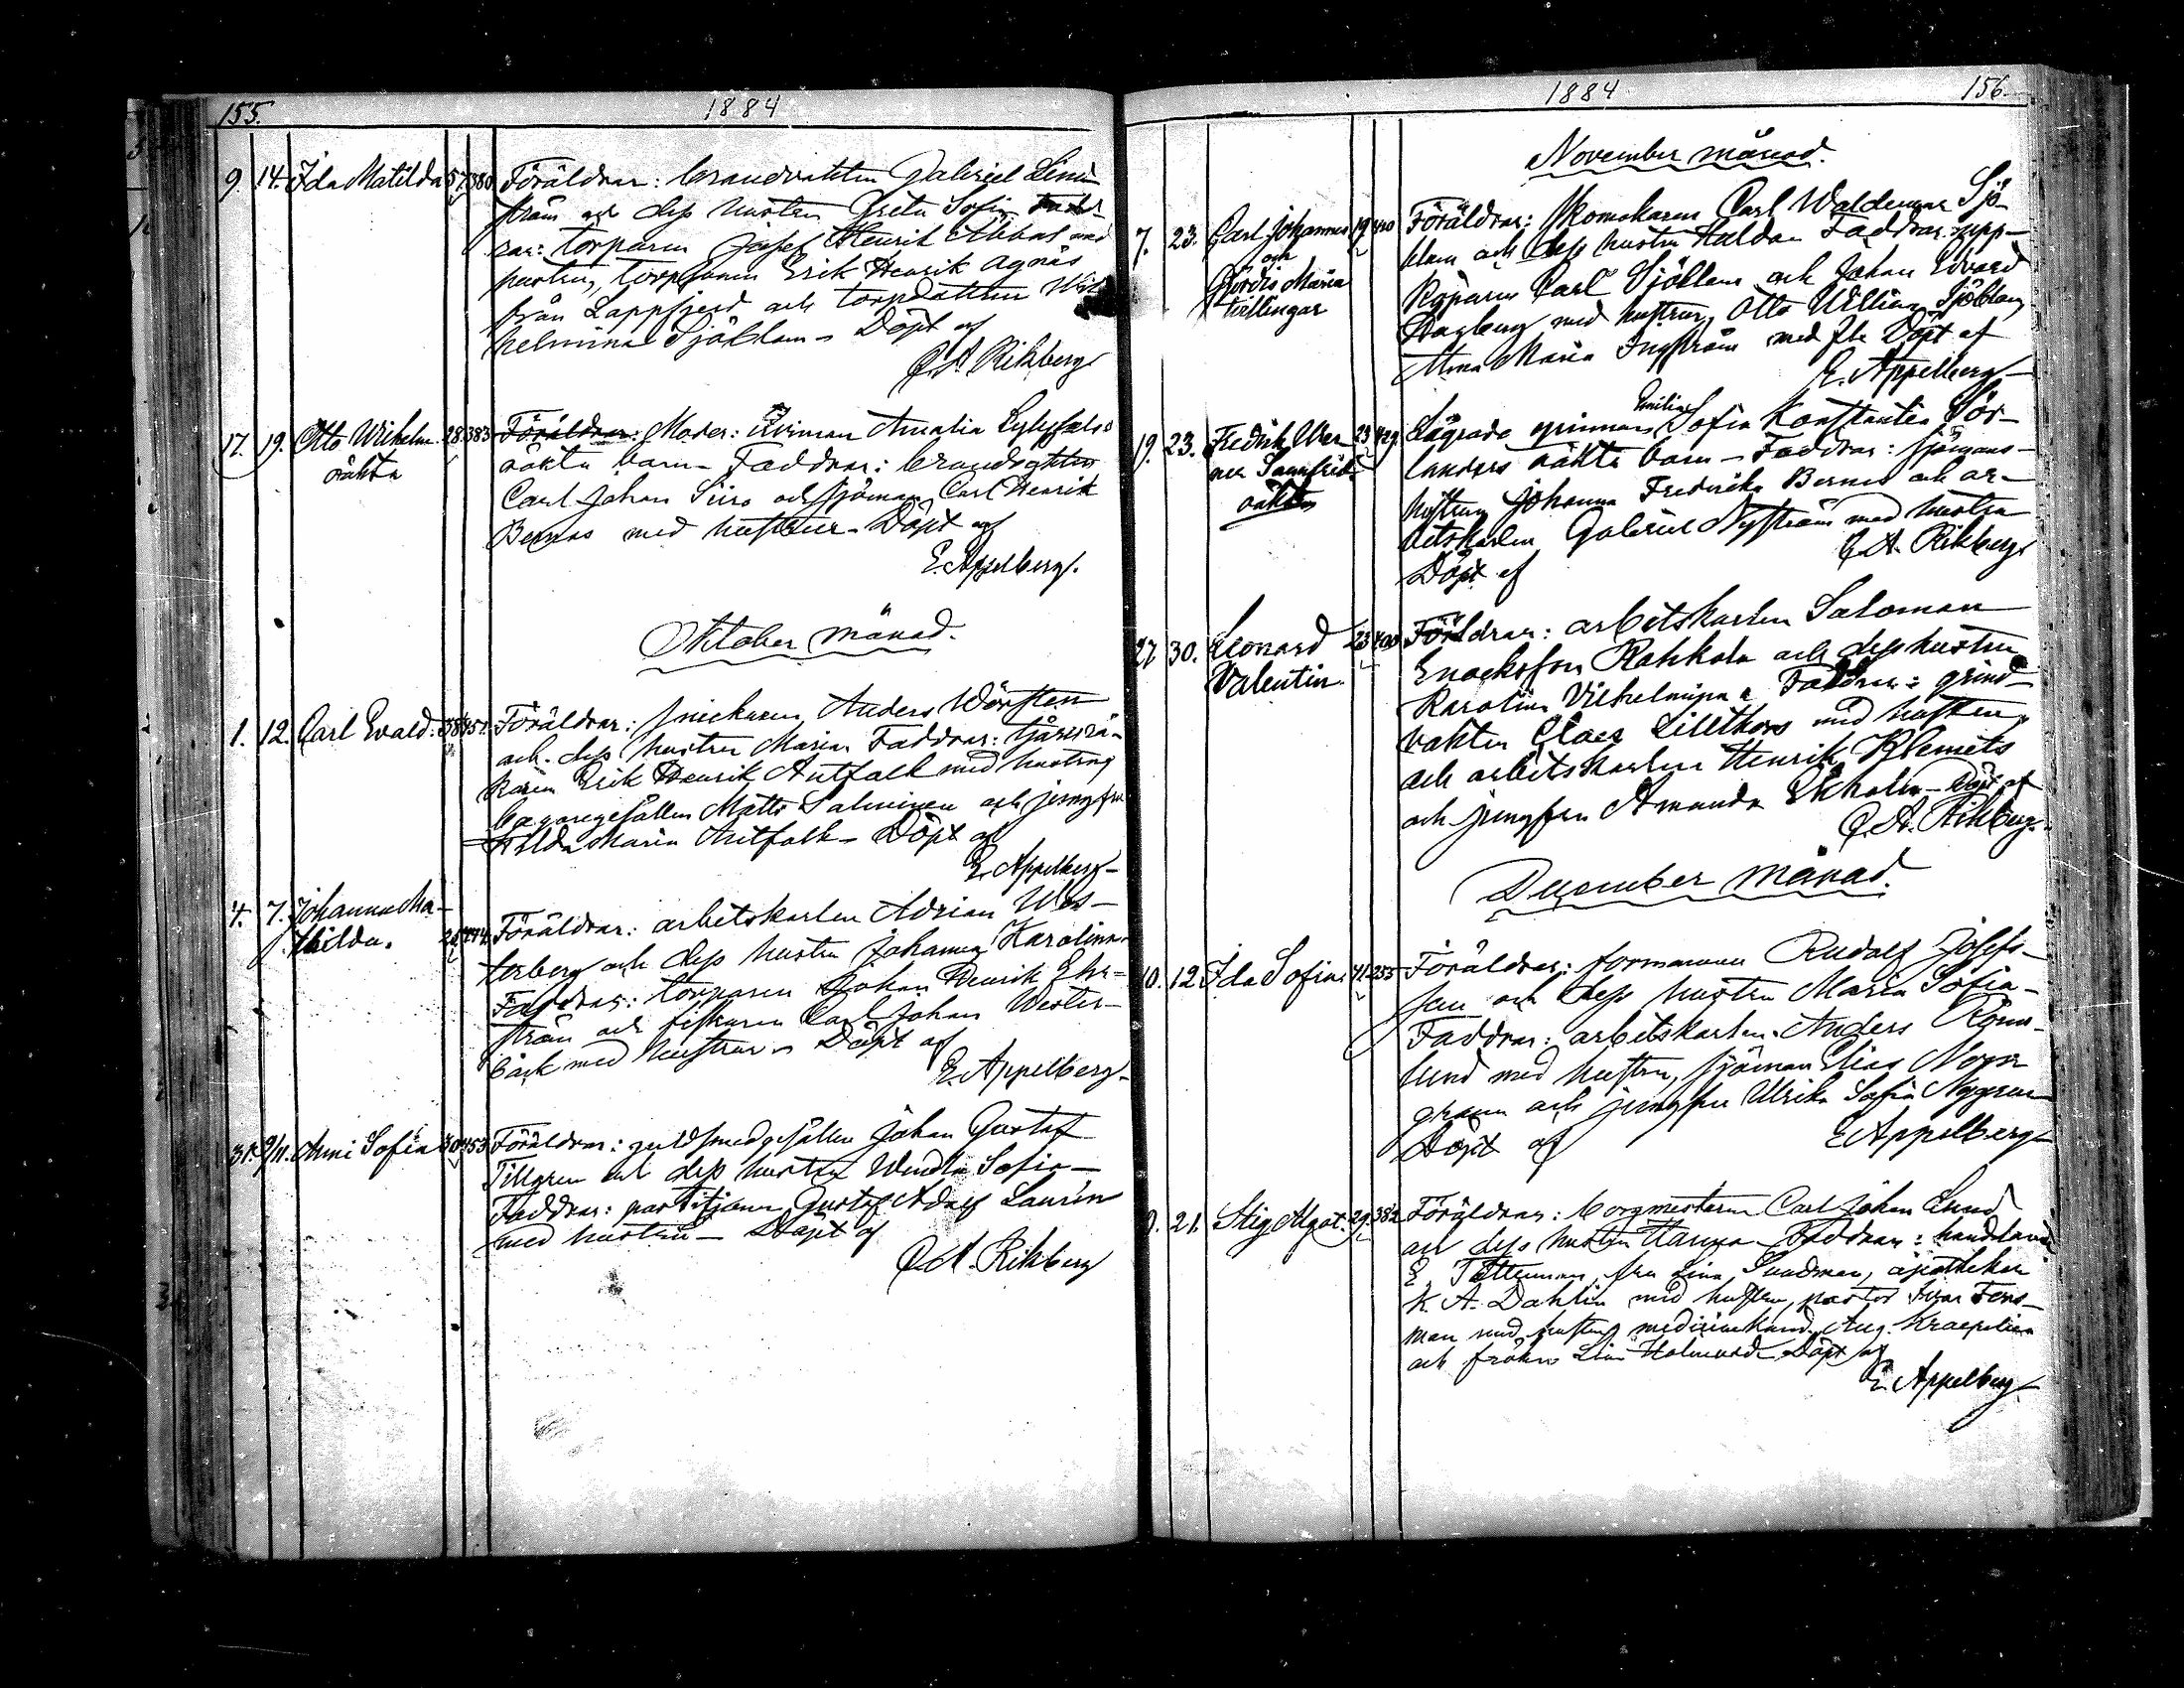 155.
1884
9. 14. Ida Matilda 57. 380. Föräldrar: brandvakten Gabriel Lind
ström och dess hustru Greta Sofia Fadd-
rar: torparen Josef Henrik Abbas med
hustru, torparen Erik Henrik Agnäs
från Lappfjerd och torpdottren Wil
helmina Sjöblom – Döpt af
C. A. Rikberg
17. 19. Otto Wilhelm 28. 383. Föräldrar: Moder: Amalia
oäkta
oäkta barn – Faddrar: brandvakten
Carl Johan Siiro och sjöman Carl Henrik
Bernas med hustrur – Döpt af
E. Appelberg.
Oktober månad.
1. 12. Carl Evald. 38 451. Föräldrar: snickaren Anders Wörsten
och dess hustru Maria Faddrar:
Erik Henrik Antfolk med hustru
bagaregesällen Matts Salminen och jungfru
Hilda Maria Antfolk – Döpt af
E. Appelberg –
4. 7. Johanna Ma-
thilda. 26 474. Föräldrar: arbetskarlen Adrian Wes-
terberg och dess hustru Johanna Karolina
Faddrar: torparen Johan Henrik Ehr-
ström och fiskaren Carl Johan Wester-
back med hustrur – Döpt af
E. Appelberg –
31. 9/11. Anni Sofia 30 453 Föräldrar: guldsmedgesällen Johan Gustaf
Tillgren och dess hustru Wendla Sofia –
Faddrar: Gustaf Adolf Laurén
med hustru – Döpt af
C. A. Rikberg
1884
156.
November månad.
7. 23. Carl Johannes 19 420 Föräldrar: skomakaren Carl Waldemar Sjö-
och
blom och dess hustru Hulda Faddrar: upp-
Gördis Maria
köparen Carl Sjöblom och Johan Edvard
tvillingar
Hagberg med hustrur, Otto William Sjöblom,
Anna Maria Ingström med fle Döpt af
E. Appelberg –
19. 23. Fredrik Wer 23 429. Lägrade qvinnan Emilia Sofia Konstantia Sör-
ner Samfrid
landers oäkta barn – Faddrar: sjömans-
oäkta
hustrun Johanna Fredrika Bernas och ar-
betskarlen Gabriel Nyström med hustru
Döpt af
C. A. Rikberg
27. 30. Leonard 23 400 Föräldrar: arbetskarlen Saloman
Valentin.
Enoksson Rahkola och dess hustru
Karolina Vilhelmina Faddrar: grind-
vakten Claes Lillthors med hustru,
och arbetskarlen Henrik Klemets
och jungfrun Amanda Ekholm – Döpt af
C. A. Rikberg.
December månad.
10. 12. Ida Sofia. 41. 255 Föräldrar: formannen Rudolf Josefs-
son och dess hustru Maria Sofia –
Faddrar: arbetskarlen Anders Rönn-
lund med hustru, sjöman Elias Norr
grann och jungfru Ulrika Sofia Nygren
Döpt af
E Appelberg –
9. 21. Stig Algot. 29. 382 Föräldrar: borgmestaren Carl Johan Lund
och dess hustru Hanna – Faddrar:
E. Tötterman, fru Lina Sundman, apothekar
K. A. Dahlin med hustru, pastor Ivar Fors-
man med hustru, medicinekand. Aug. Kraepelien
och fröken Lina Döpt af
E. Appelberg –